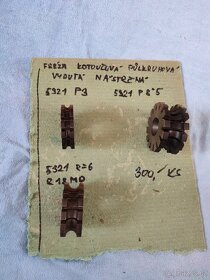 FRÉZA KOTOUČOVÁ PŮLKRUHOVÁ
VYDUTÁ NÁSTRČNÁ
5321 P3 5321 R=5
5321 R=6
R18 MO
300,- KS